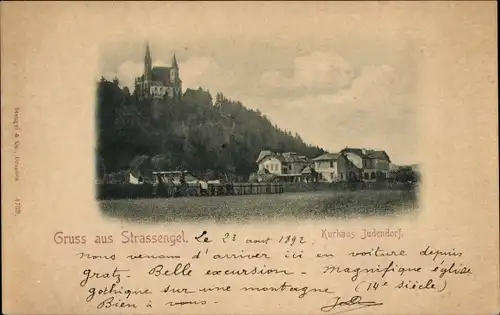 Stengel & Co., Dresden 4759.
Gruss aus Strassengel. Le 23 aout 1892. Kurhaus Judendorf.
nous venons d'arriver ici en voiture depuis
gratz - Belle excursion - magnifique église
gothique sur une montagne (14e siècle)
Bien à vous -